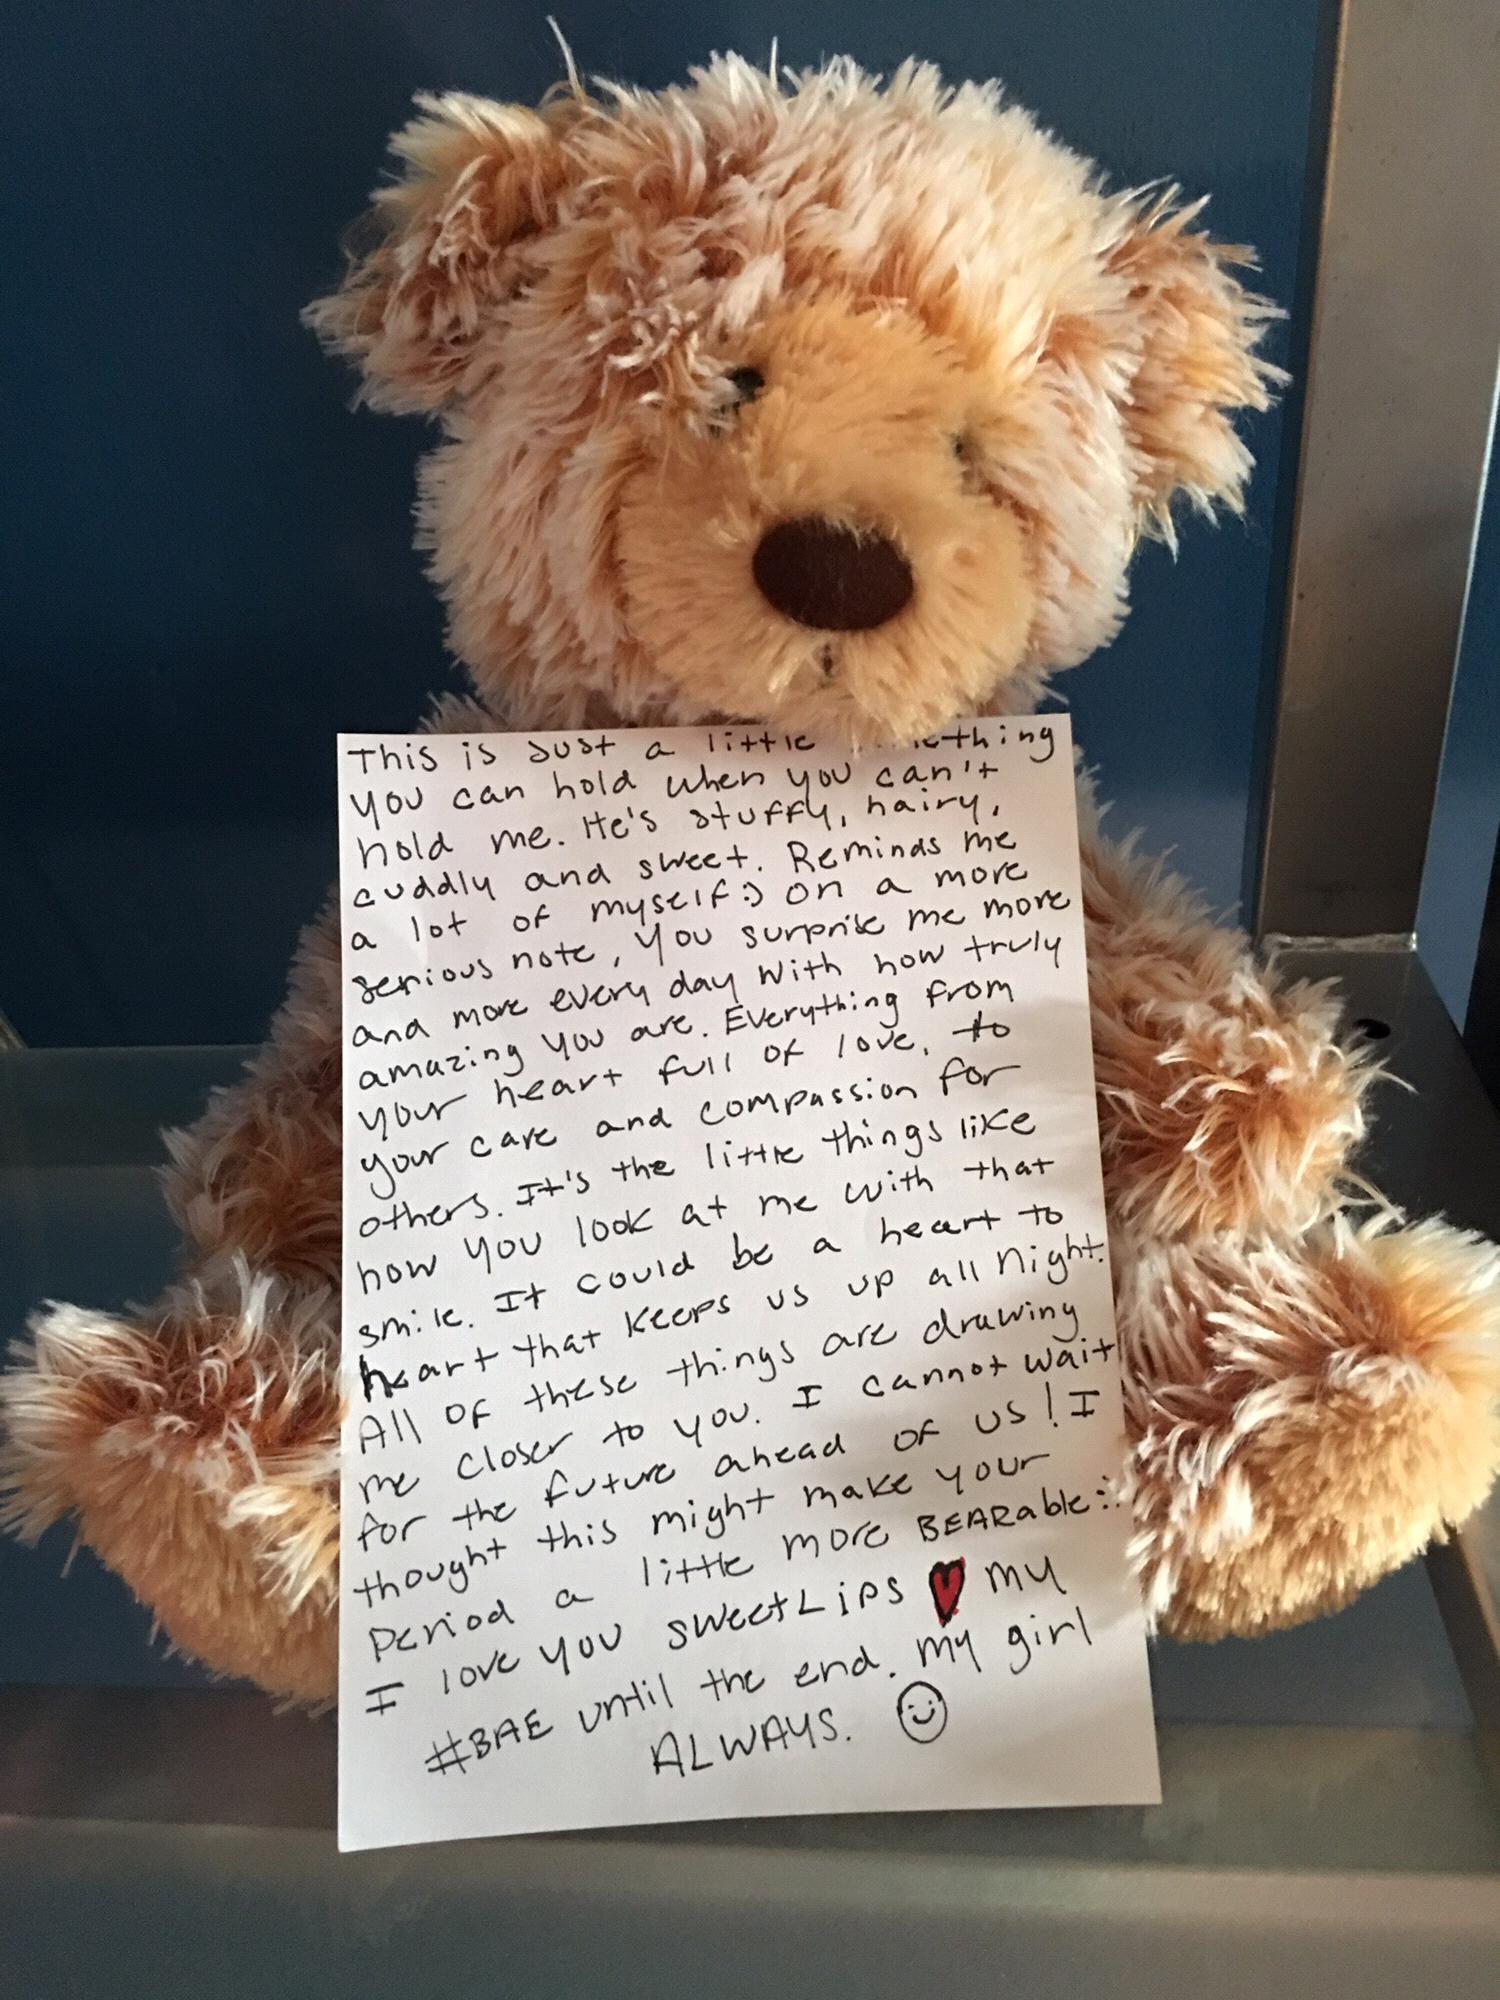 This is Just a little something
you can hold when you can't
hold me. He's stuffy, hairy,
cuddly and sweet. Reminds me
a lot of myself:) on a more
serious note, you surprise me more
and more every day with how truly
amazing you are. Everything from
your heart full of love, to
your care and compassion for
others. It's the little things like
how you look at me with that
smile. It could be a heart to
heart that keeps us up all night.
All of these things are drawing
me closer to you. I cannot wait
for the future ahead of us! I
thought this might make your
period a little more BEARable:)
I love you sweetLips ♥ my
#BAE until the end. My girl
ALWAYS. ☺